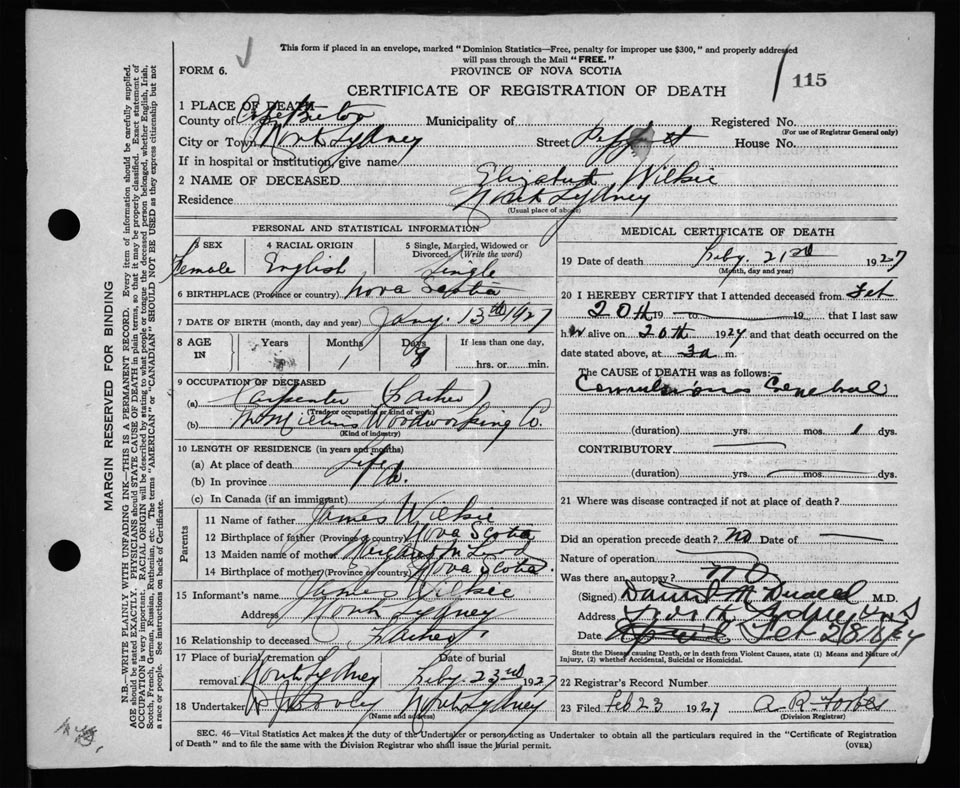 This form if placed in an envelope, marked "Dominion Statistics—Free, penalty for improper use $300," and properly addressed
will pass through the Mail "FREE."
FORM 6.
PROVINCE OF NOVA SCOTIA
115
CERTIFICATE OF REGISTRATION OF DEATH
1 PLACE OF DEATH
County of Cape Breton Municipality of Registered No.
(For use of Registrar General only)
City or Town North Sydney Street House No.
If in hospital or institution, give name
2 NAME OF DECEASED Elizabeth Wilkie
Residence North Sydney
(Usual place of abode)
PERSONAL AND STATISTICAL INFORMATION
3 SEX 4 RACIAL ORIGIN 5 Single, Married, Widowed or Divorced. (Write the word)
Female English Single
6 BIRTHPLACE (Province or country) Nova Scotia
7 DATE OF BIRTH (month, day and year) Jany. 13th 1927
8 AGE IN Years Months Days If less than one day,
1 8 hrs. or min.
9 OCCUPATION OF DECEASED
(a) Carpenter (Father)
(Trade or occupation or kind of work)
(b) Woodworking Co.
(Kind of industry)
10 LENGTH OF RESIDENCE (in years and months)
(a) At place of death Life
(b) In province
(c) In Canada (if an immigrant)
Parents
11 Name of father James Wilkie
12 Birthplace of father (Province or country) Nova Scotia
13 Maiden name of mother
14 Birthplace of mother (Province or country) Nova Scotia
15 Informant's name James Wilkie
Address North Sydney
16 Relationship to deceased Father
17 Place of burial, cremation or removal Date of burial
North Sydney Feby. 23rd 1927
18 Undertaker North Sydney
(Name and address)
MEDICAL CERTIFICATE OF DEATH
19 Date of death Feby. 21st 1927
(Month, day and year)
20 I HEREBY CERTIFY that I attended deceased from Feb
20th 19 to 19 that I last saw
h er alive on 20th 1927 and that death occurred on the
date stated above, at 3a m.
The CAUSE OF DEATH was as follows:—
Convulsions Cerebral
(duration) yrs. mos. 1 dys.
CONTRIBUTORY
(duration) yrs. mos. dys.
21 Where was disease contracted if not at place of death?
Did an operation precede death? no Date of
Nature of operation
Was there an autopsy? no
(Signed) M.D.
Address North Sydney N S
Date Feb
State the Disease causing Death, or in death from Violent Causes, state (1) Means and Nature of
Injury, (2) whether Accidental, Suicidal or Homicidal.
22 Registrar's Record Number
23 Filed Feb 23 1927 A. R. Forbes
(Division Registrar)
SEC. 46—Vital Statistics Act makes it the duty of the Undertaker or person acting as Undertaker to obtain all the particulars required in the "Certificate of Registration
of Death" and to file the same with the Division Registrar who shall issue the burial permit.
(OVER)
MARGIN RESERVED FOR BINDING
N.B.—WRITE PLAINLY WITH UNFADING INK—THIS IS A PERMANENT RECORD. Every item of information should be carefully supplied.
AGE should be stated EXACTLY. PHYSICIANS should STATE CAUSE OF DEATH in plain terms, so that it may be properly classified. Exact statement of
OCCUPATION is very important. RACIAL ORIGIN will be described by stating to what people or tongue the deceased person belonged, whether English, Irish,
Scotch, French, German, Russian, Ruthenian, etc. The terms "AMERICAN" or "CANADIAN" SHOULD NOT BE USED as they express citizenship but not
a race or people. See instructions on back of Certificate.